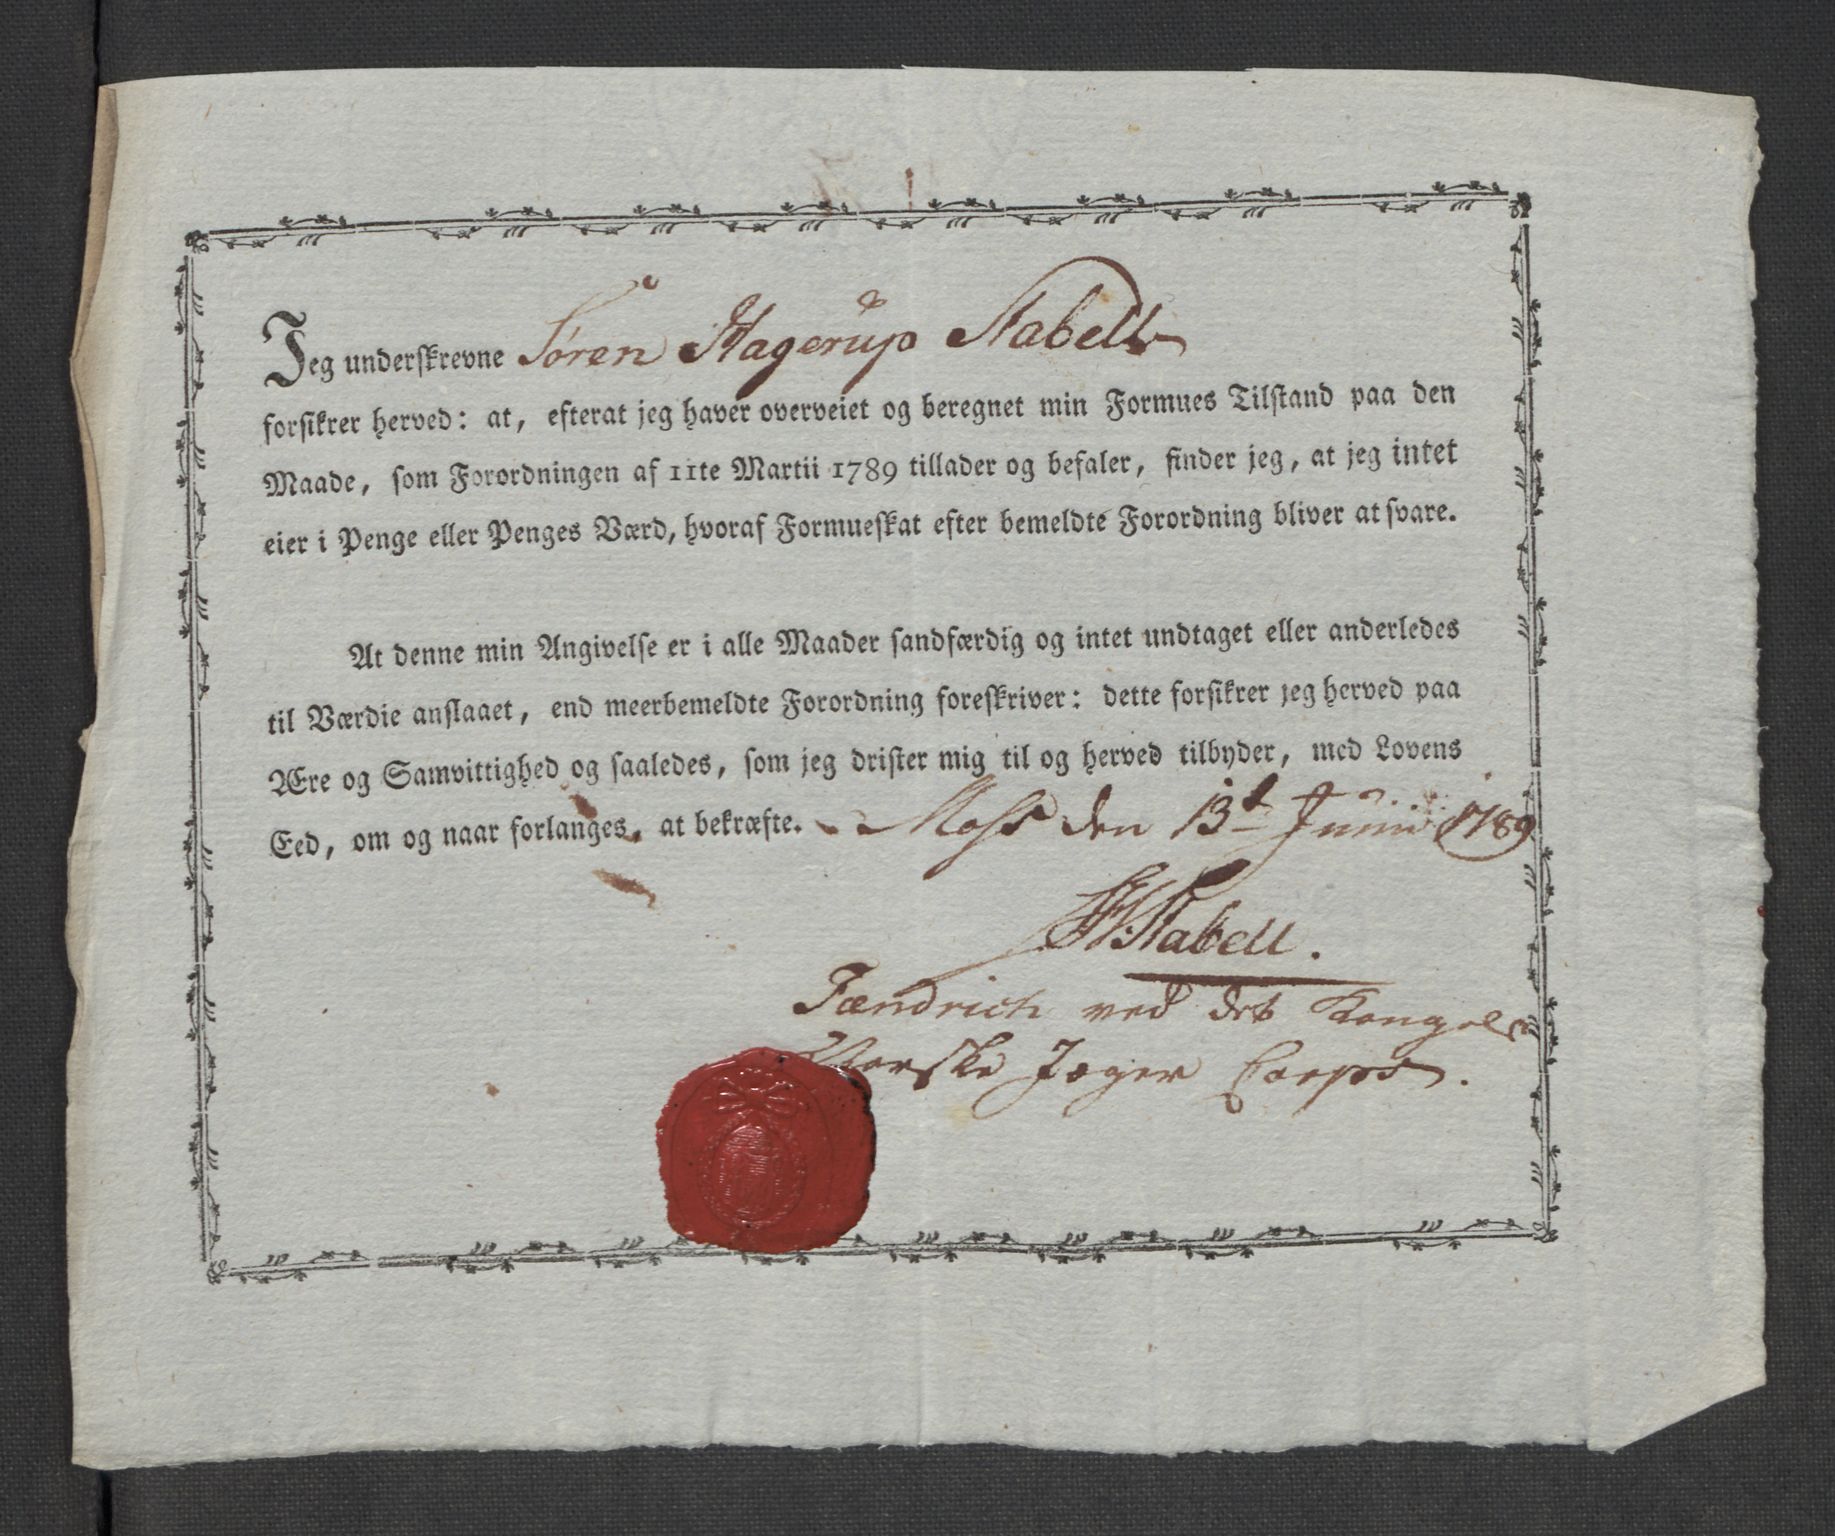 Jeg underskrevne Søren Hagerup Stabell
forsikrer herved: at, efterat jeg haver overveiet og beregnet min Formues Tilstand paa den
Maade, som Forordningen af 11te Martii 1789 tillader og befaler, finder jeg, at jeg intet
eier i Penge eller Penges Værd, hvoraf Formueskat efter bemeldte Forordning bliver at svare.
At denne min Angivelse er i alle Maader sandfærdig og intet undtaget eller anderledes
til Værdie anslaaet, end meerbemeldte Forordning foreskriver: dette forsikrer jeg herved paa
Ære og Samvittighed og saaledes, som jeg drister mig til og herved tilbyder, med Lovens
Eed, om og naar forlanges, at bekræfte. Moss den 13d Junii 1789
SHStabell.
Fændrich ved det Kongel
Norske Jæger Corps.